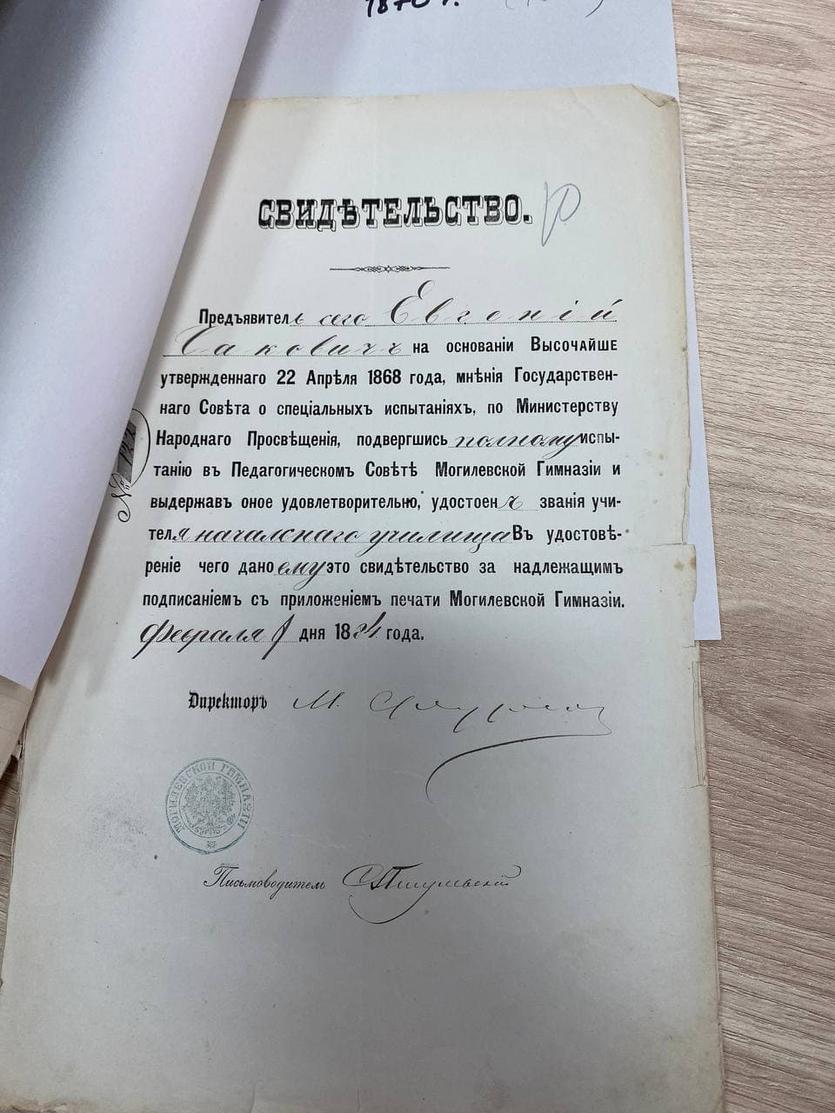 1870 г.
СВИДѢТЕЛЬСТВО.
Предъявитель сего Евгеній
Сакович на основаніи ВЫСОЧАЙШЕ
утвержденнаго 22 Апрѣля 1868 года, мнѣнія Государствен-
наго Совѣта о спеціальныхъ испытаніяхъ, по Министерству
Народнаго Просвѣщенія, подвергшись полному испы-
танію въ Педагогическомъ Совѣтѣ Могилевской Гимназіи и
выдержавъ оное удовлетворительно, удостоенъ званія учи-
теля началснаго училища Въ удостовѣ-
реніе чего дано ему это свидѣтельство за надлежащимъ
подписаніемъ съ приложеніемъ печати Могилевской Гимназіи.
Февраля дня 1884 года.
Директоръ М.
МОГИЛЕВСКОЙ ГИМНАЗІИ
Письмоводитель
№ 127